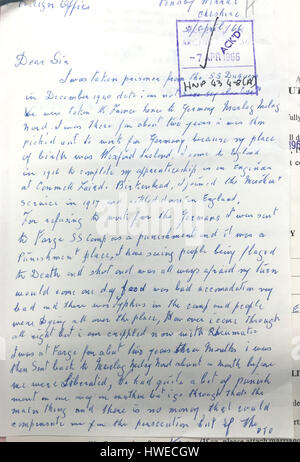 Foreign Office
Cheshire
5/April/1965
ACK'D
- 7 APR 1965
HNP 43 4-2(A)
Dear Sir
I was taken prisoner from the SS
in December 1940
We were taken to France hence to Germany Marlag Milag
Nord. I was there for about two years i was then
picked out to work for Germany because my place
of birth was Wexford Ireland. I came to England
in 1916 to complete my apprenticeship as an Engineer
at Cammell Laird. Birkenhead, I joined the Merchant
service in 1917. in England.
For refusing to work for the Germans i was sent
to Farge SS Camp as a punishment and it was a
Punishment place, I have seing people being floged
to Death and shot and was all ways afraid my turn
would come. day food was bad accomodation very
bad and there was Typhus in the camp and people
were Dying all over the place. How ever i come through
all right but i am crippled now with Rheumatic
I was at Farge for about two years three Months i was
then sent back to Marlag Milag Nord about a month before
we were Liberated, We had quite a bit of punish
ment on one way or another but i go through thats the
main thing and there is no money that could
compensate me for the persecution but if the
PTO
alamy
Image ID: HWECGW
www.alamy.com